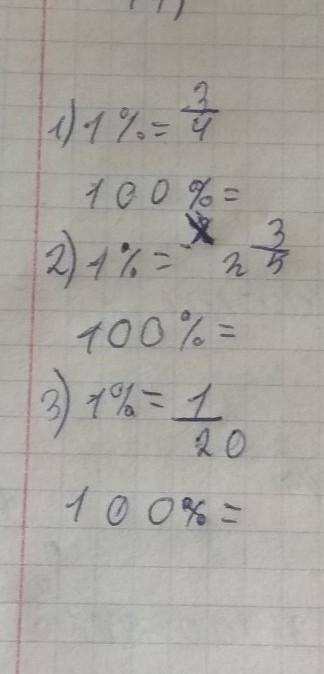 1) 1% = 3/4
100% =
2) 1% = 2 3/5
100% =
3) 1% = 1/20
100% =